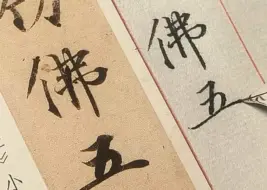 佛五
佛五
小